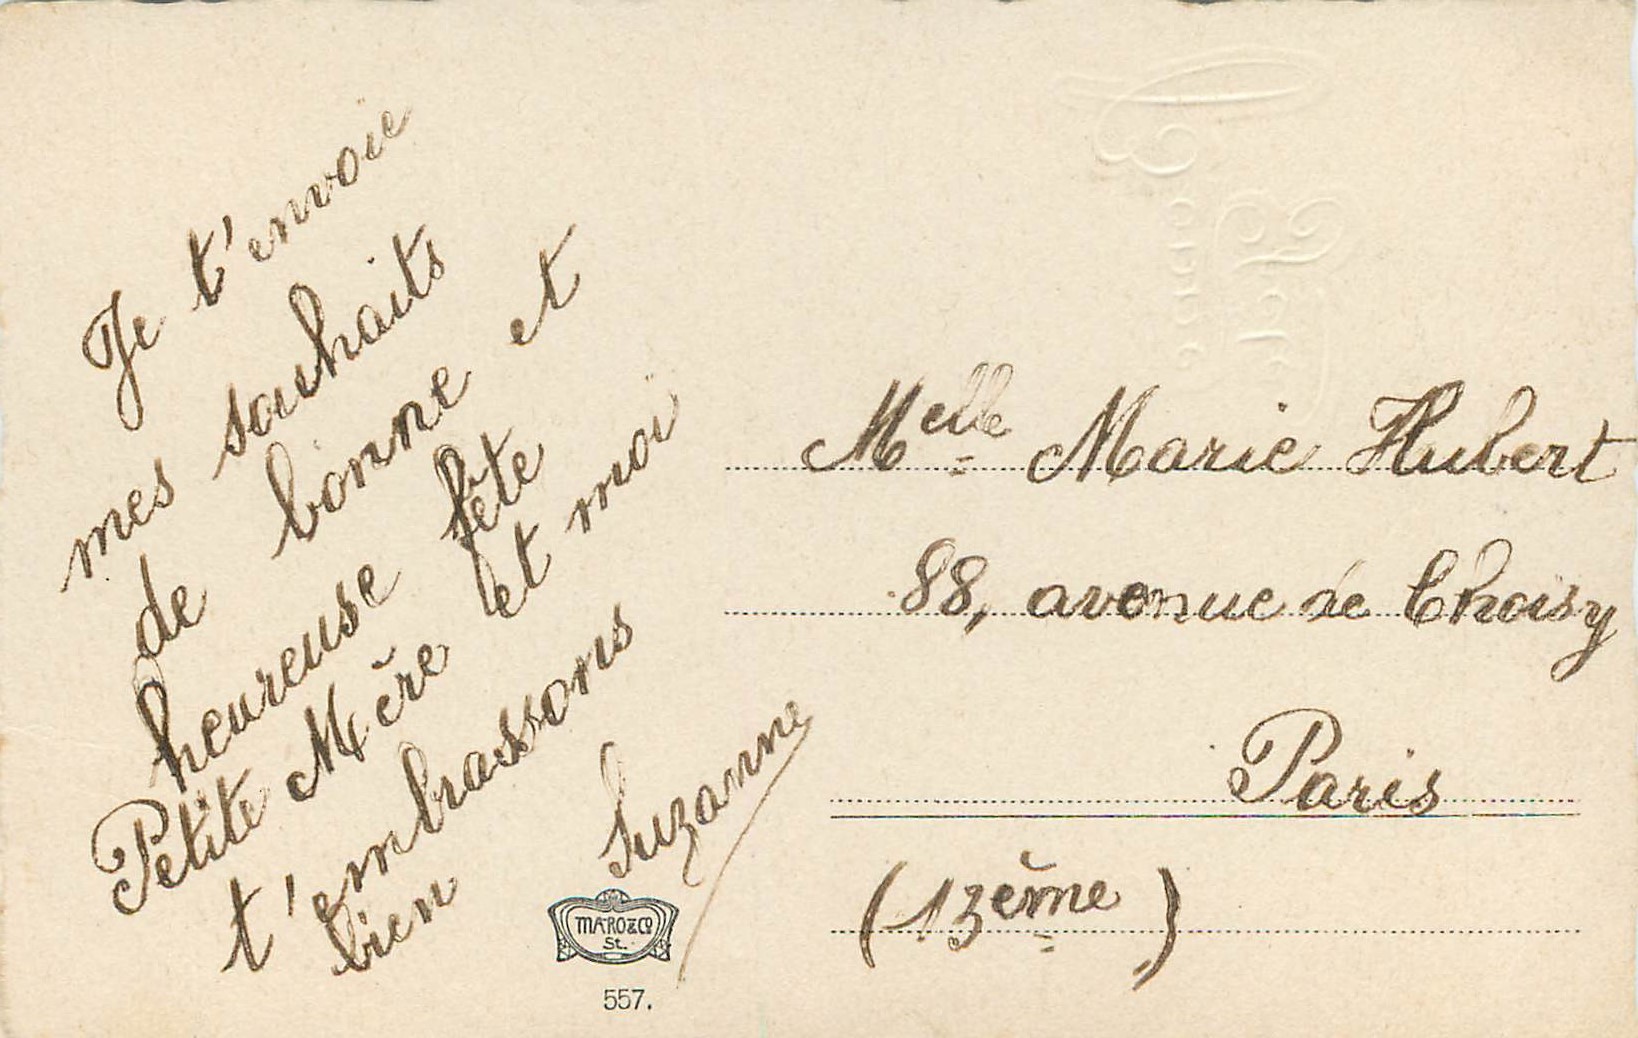 Je t'envoie
mes souhaits
de bonne et
heureuse fête
Petite Mère et moi
t'embrassons
bien
Suzanne
MARO & Co
St.
557.
Melle Marie Hubert
88, avenue de Choisy
Paris
(13ème)